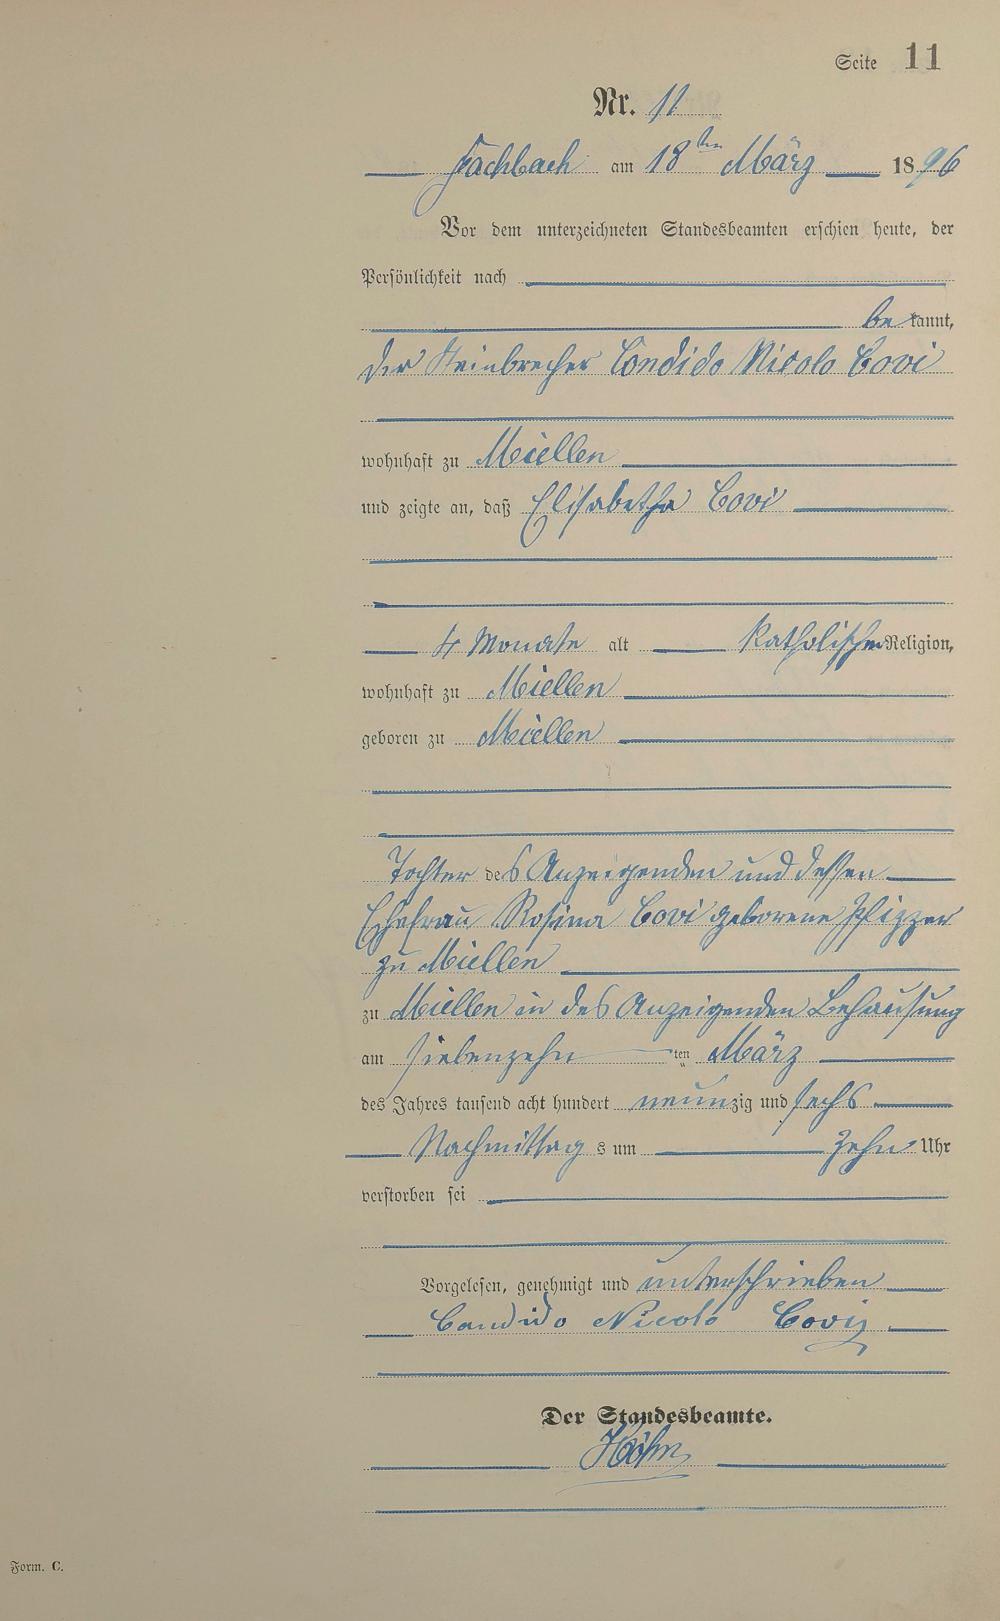 Seite 11
Nr. 11
Fachbach am 18ten März 1896
Vor dem unterzeichneten Standesbeamten erschien heute, der
Persönlichkeit nach
bekannt,
der Steinbrecher Condido Nicolo Covi
wohnhaft zu Miellen
und zeigte an, daß Elisabetha Covi
4 Monate alt katholischer Religion,
wohnhaft zu Miellen
geboren zu Miellen
Tochter des Anzeigenden und dessen
Ehefrau Rosina Covi geborene
zu Miellen
zu Miellen in des Anzeigenden Behausung
am siebenzehnten März
des Jahres tausend acht hundert neunzig und sechs
Nachmittags um zehn Uhr
verstorben sei
Vorgelesen, genehmigt und unterschrieben
Candido Nicolo Covi
Der Standesbeamte.
Form. C.